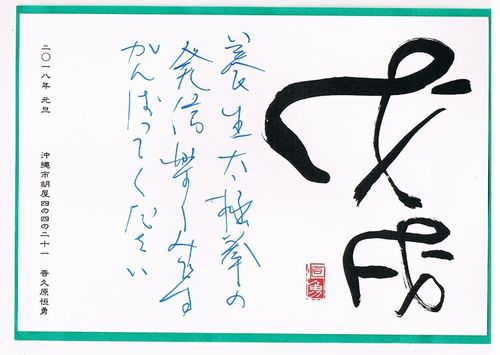 戊戌
養生太極拳の
発信楽しみです
がんばってください
二〇一八年 元旦
沖縄市胡屋四の四の二十一 普久原恒勇
恒勇